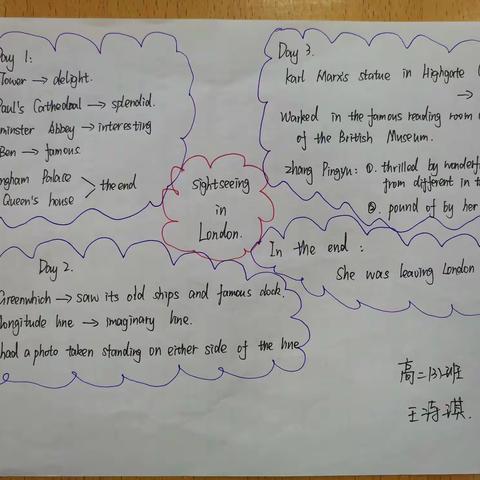 Day 1:
Tower → delight.
Paul's Cathedral → splendid.
minster Abbey → interesting
Ben → famous
ngham Palace
Queen's house
> the end
Sightseeing
in
London.
Day 2.
Greenwhich → saw its old ships and famous clock.
longitude line → imaginary line.
had a photo taken standing on either side of the line
Day 3.
karl Marx's statue in Highgate
→
Warked in the famous reading room
of the British Museum.
zhang Pingyu: ①. thrilled by wonderf
from different in t
②. pound of by her
In the end :
She was leaving London
高二(3)班
王诗淇.